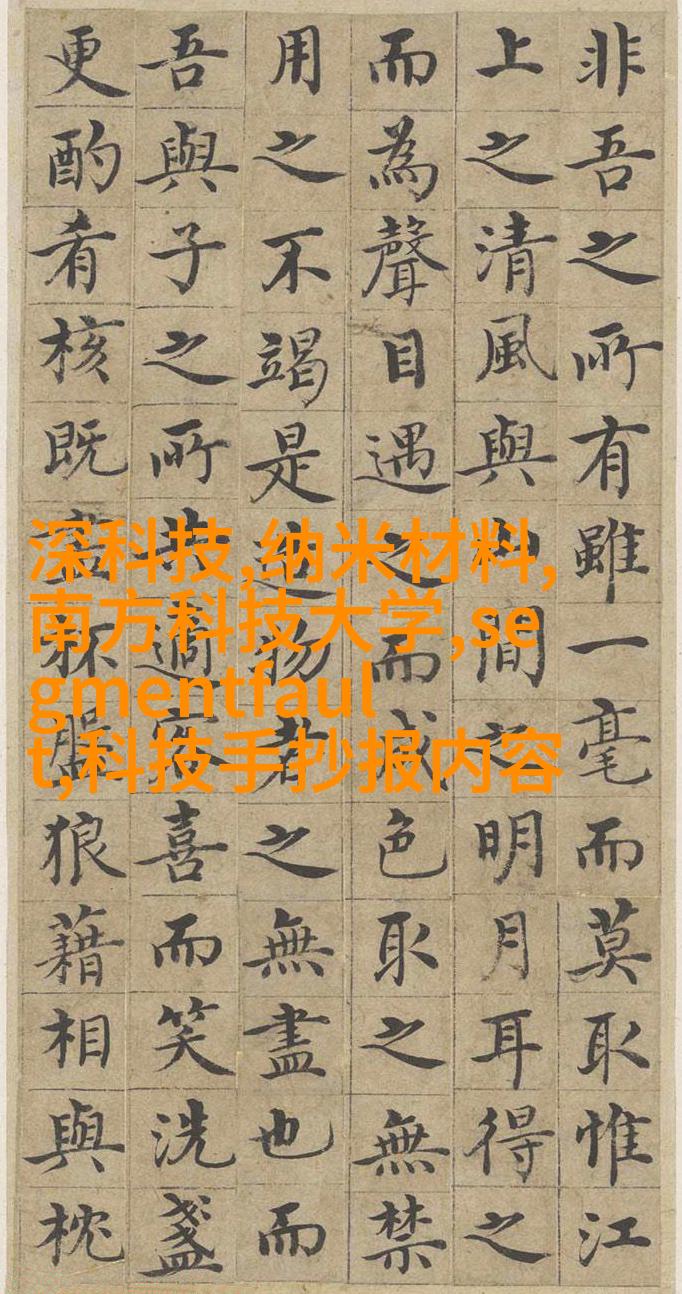 非吾之所有雖一毫而莫取惟江
上之清風與山間之明月耳得之
而為聲目遇之而成色取之無禁
用之不竭是造物者之無盡也而
吾與子之所共適客喜而笑洗盞
更酌肴核既盡杯盤狼藉相與枕
深科技,纳米材料,
南方科技大学,se
gmentfaul
t,科技手抄报内容